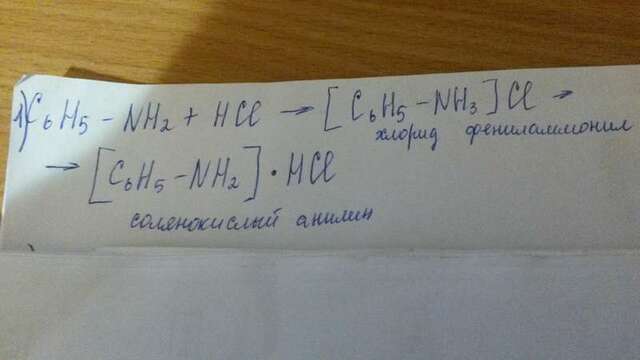 1) C₆H₅ – NH₂ + HCl → [C₆H₅ – NH₃] Cl →
хлорид фениламмонил
→ [C₆H₅ – NH₂] · HCl
солянокислый анилин